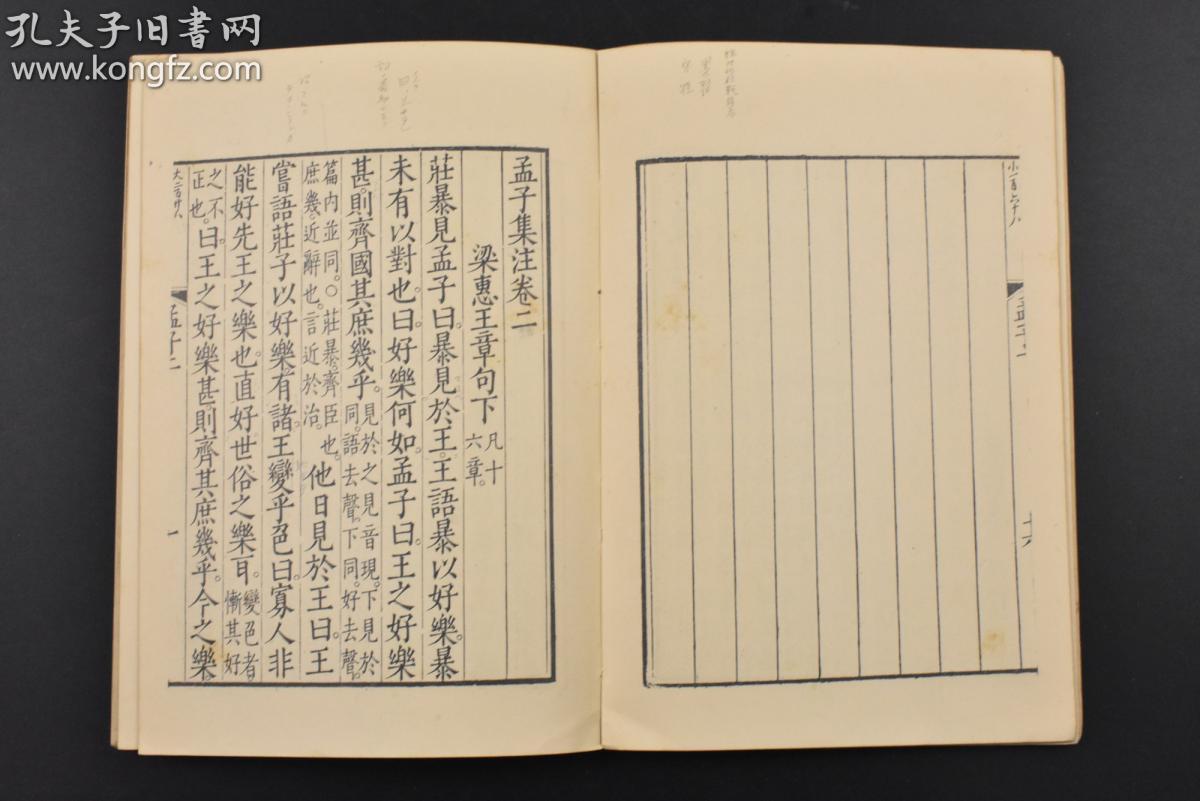 孔夫子旧书网
www.kongfz.com
小一百六十八
孟子集注卷二
梁惠王章句下 凡十六章。
莊暴見孟子曰。暴見於王。王語暴以好樂。暴
未有以對也。曰。好樂何如。孟子曰。王之好樂
甚。則齊國其庶幾乎。見於之見音現。下見於同。語去聲。下同。好去聲。
篇內並同。○莊暴。齊臣也。庶幾。近辭也。言近於治。他日見於王曰。王
嘗語莊子以好樂。有諸。王變乎色曰。寡人非
能好先王之樂也。直好世俗之樂耳。變色者。慚其好
之不正也。曰。王之好樂甚。則齊其庶幾乎。今之樂
大二百廿八
孟子二
一